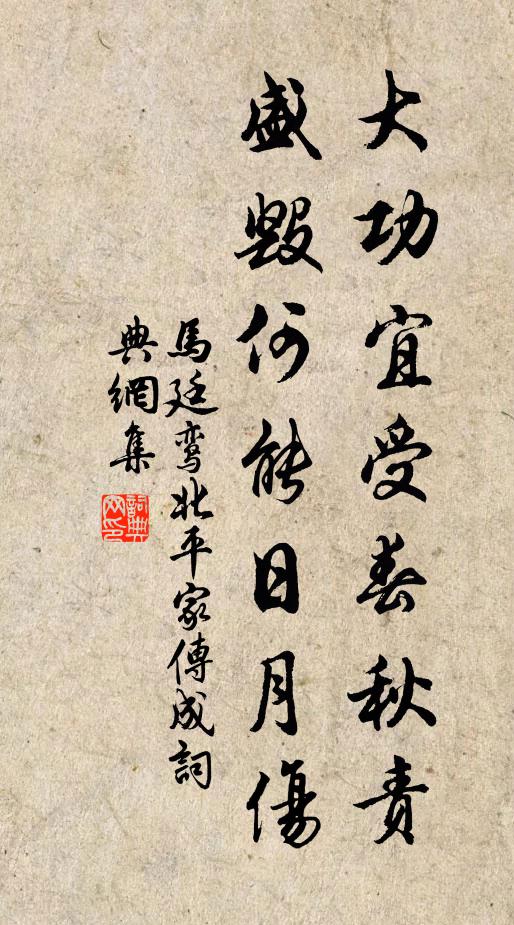 大功宜受春秋责
盛毁何能日月傷
馬廷鸾北平家傳成詞
典網集
詞典网印